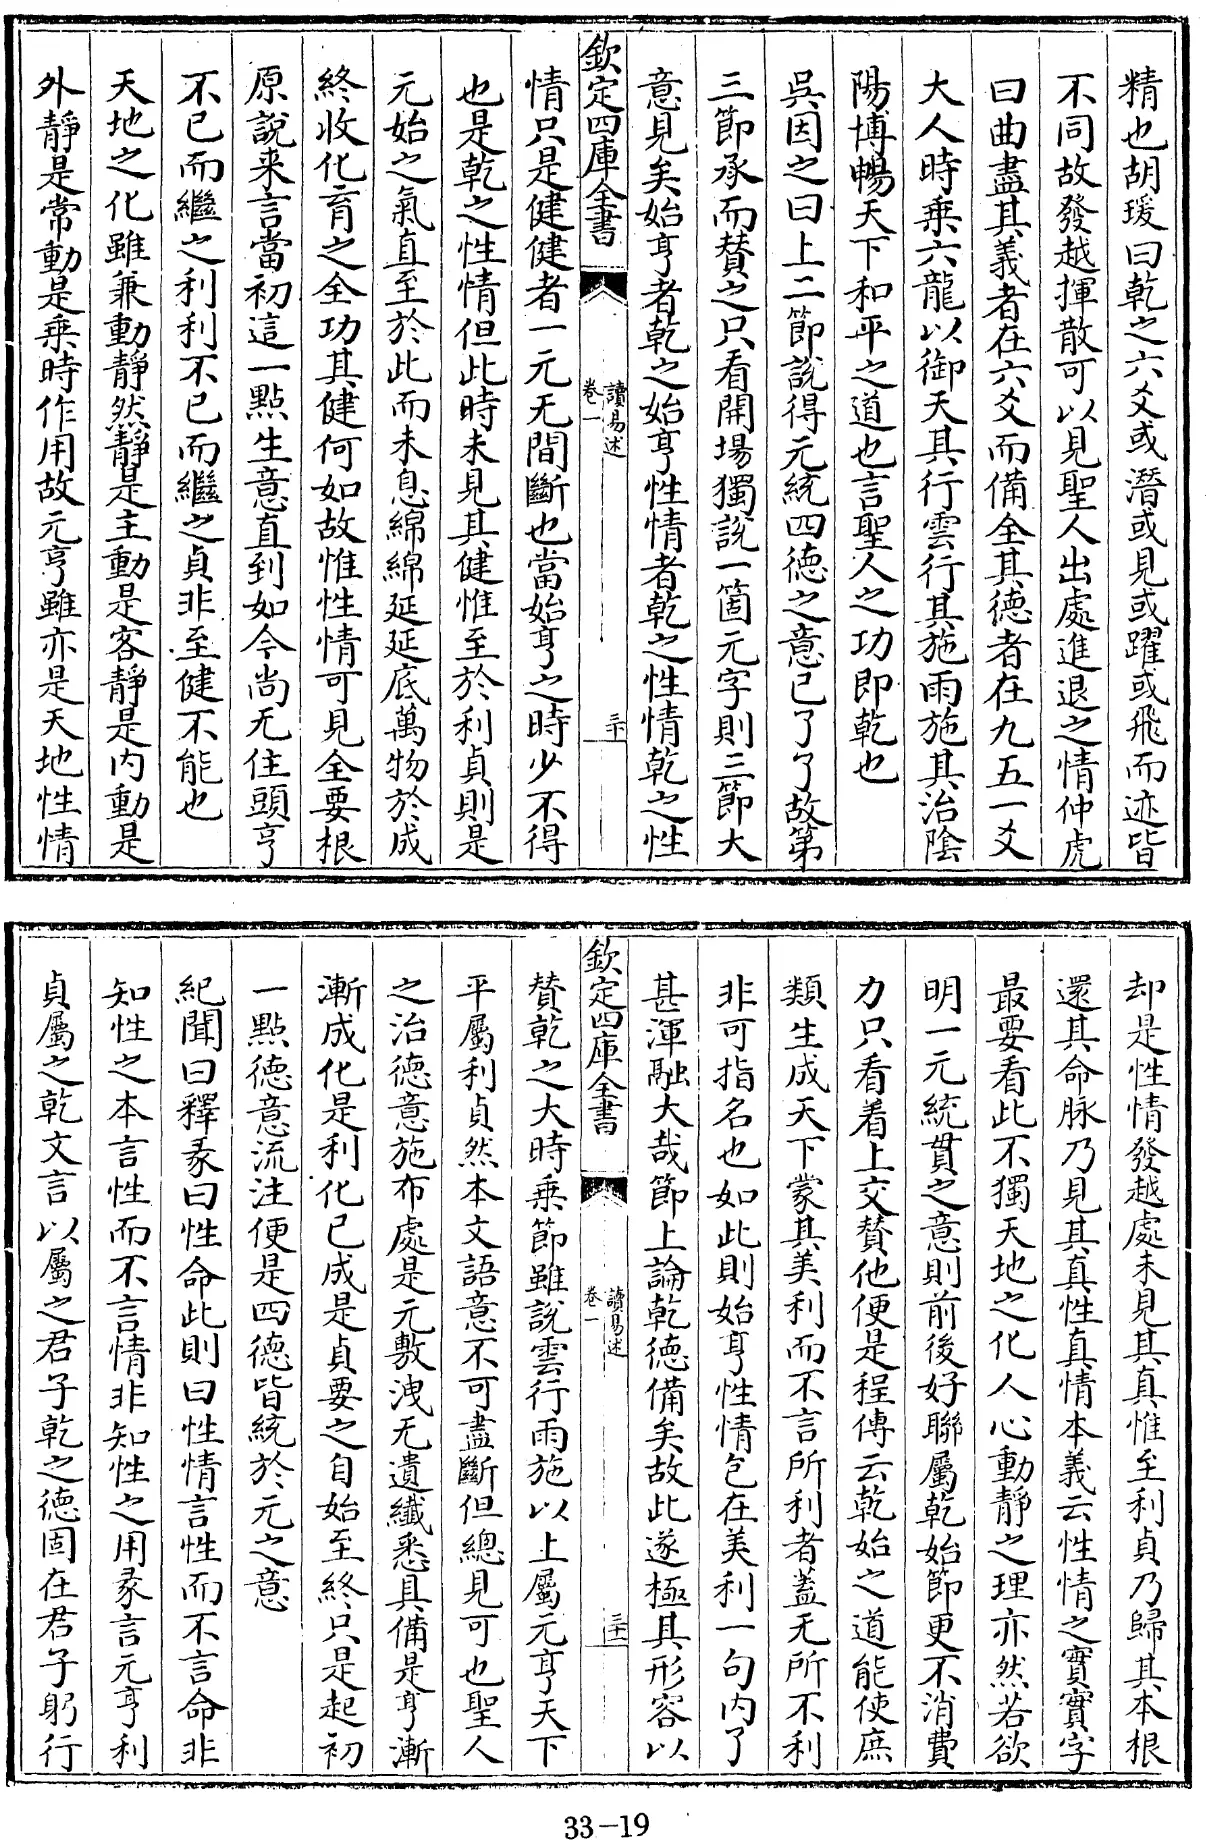 精也胡瑗曰乾之六爻或潛或見或躍或飛而迹皆
不同故發越揮散可以見聖人出處進退之情仲虎
曰曲盡其義者在六爻而備全其德者在九五一爻
大人時乗六龍以御天其行雲行其施雨施其治陰
陽博暢天下和平之道也言聖人之功即乾也
吳因之曰上二節說得元統四德之意已了了故第
三節承而賛之只看開場獨說一箇元字則三節大
意見矣始亨者乾之始亨性情者乾之性情乾之性
欽定四庫全書
讀易述
卷一
三十
情只是健健者一元无間斷也當始亨之時少不得
也是乾之性情但此時未見其健惟至於利貞則是
元始之氣直至於此而未息綿綿延延底萬物於成
終收化育之全功其健何如故惟性情可見全要根
原說来言當初這一點生意直到如今尚无住頭亨
不已而繼之利利不已而繼之貞非至健不能也
天地之化雖兼動靜然靜是主動是客靜是内動是
外靜是常動是乗時作用故元亨雖亦是天地性情
却是性情發越處未見其真惟至利貞乃歸其本根
還其命脉乃見其真性真情本義云性情之實實字
最要看此不獨天地之化人心動靜之理亦然若欲
明一元統貫之意則前後好聯屬乾始節更不消費
力只看着上文賛他便是程傳云乾始之道能使庶
類生成天下蒙其美利而不言所利者葢无所不利
非可指名也如此則始亨性情包在美利一句内了
甚渾融大哉節上論乾德備矣故此遂極其形容以
欽定四庫全書
讀易述
卷一
三十一
賛乾之大時乗節雖說雲行雨施以上屬元亨天下
平屬利貞然本文語意不可盡斷但總見可也聖人
之治德意施布處是元敷洩无遺纖悉具備是亨漸
漸成化是利化已成是貞要之自始至終只是起初
一點德意流注便是四德皆統於元之意
紀聞曰釋彖曰性命此則曰性情言性而不言命非
知性之本言性而不言情非知性之用彖言元亨利
貞屬之乾文言以屬之君子乾之德固在君子躬行
33-19